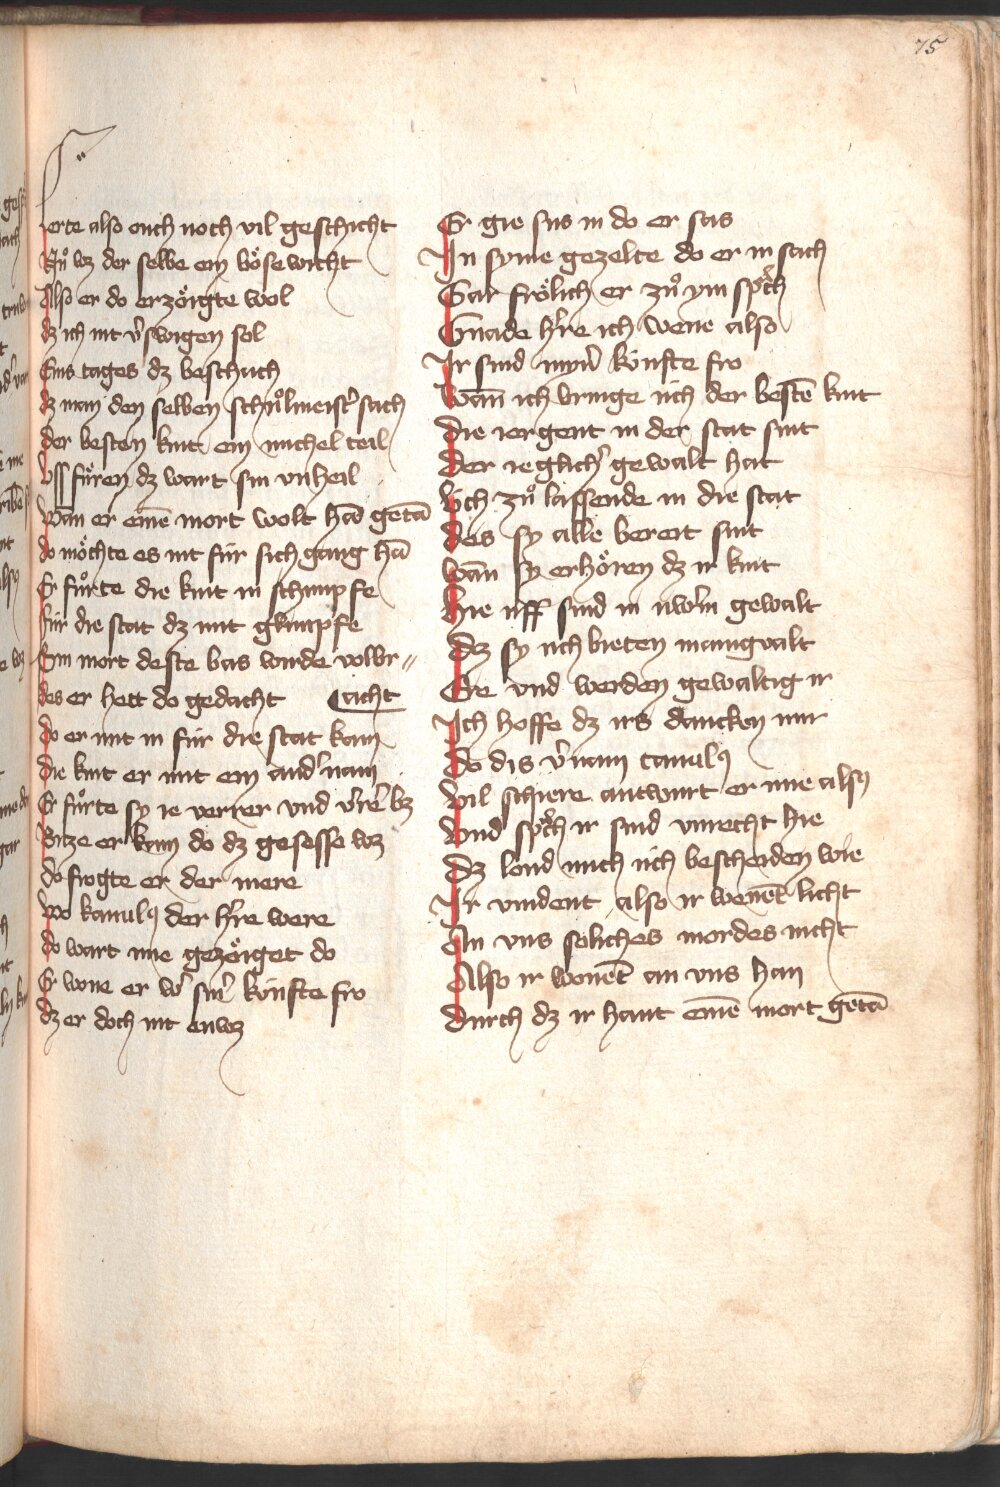 75
ierte also ouch noch vil geschicht
Nuͦ wz der selbe ein böse wicht
Also er do erzöigte wol
dz ich nit v̓swigen sol
Eins tages dz beschach
dz man den selben schuͦlmeist̓ sach
der besten kint ein michel teil
vss fuͤren dz wart sin vnheil
Wan er eine̅ mort wolt ha̅ geta̅
do möchte es nit fúr sich gang ha̅
Er fuͦrte die kint in schimpfe
fúr die stat dz mit glimpfe
Sin mort deste bas wurde volbr //
des er hett do gedacht acht
do er mit in fúr die stat kam
die kint er mit ein and̓ nam
Er fuͦrte sy ie verrer vnd v̓re̅ bz
Bitze er kam do dz gesesse wz
do frogte er der mere
Wo kamulꝰ der h̓re were
do wart ime gezöiget do
Er wone er w̓ sin̓ kúnfte fro
dz er doch nit enwz
Er gie sus in do er sas
In syme gezelte do er in sach
Gar frölich er zuͦ ym sp̓ch
Gnade h̓re ich wene also
Ir sind myn̓ kúnfte fro
Wan̅ ich bringe úch der beste̅ kint
die iergent in der stat sint
der ieglich̓ gewalt hat
úch zuͦ lassende in die stat
des sy alle bereit sint
Wan̅ sy erhören dz ir kint
hie uff sind in úw̓m gewalt
dz sy úch bieten manigvalt
Ere vnd werden gewaltig ir
Ich hoffe dz irs dancken mir
do dis v̓nam camulꝰ
Vil schiere antwurt er ime alsꝰ
Vnd sp̓ch ir sind vnrecht hie
Dz lond mich úch bescheiden wie
Ir vindent also ir wene̅t licht
An vns soliches mordes nicht
Also ir wone̅t an vns han
durch dz ir hant eine̅ mort geta̅